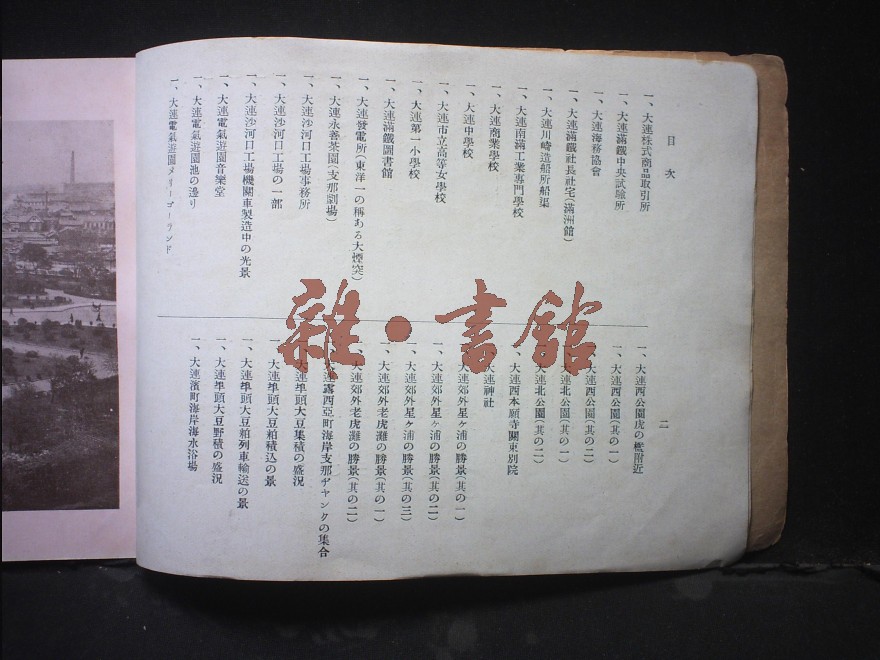 目次
一、大連株式商品取引所
一、大連滿鐵中央試驗所
一、大連海務協會
一、大連滿鐵社長社宅(滿洲館)
一、大連川崎造船所船渠
一、大連南滿工業專門學校
一、大連商業學校
一、大連中學校
一、大連市立高等女學校
一、大連第一小學校
一、大連滿鐵圖書館
一、大連發電所(東洋一の稱ある大煙突)
一、大連永善茶園(支那劇場)
一、大連沙河口工場事務所
一、大連沙河口工場の一部
一、大連沙河口工場機關車製造中の光景
一、大連電氣遊園音樂堂
一、大連電氣遊園池の邊り
一、大連電氣遊園メリーゴーランド
一、大連西公園虎の檻附近
一、大連西公園(其の一)
一、大連西公園(其の二)
一、大連北公園(其の一)
一、大連北公園(其の二)
一、大連西本願寺關東別院
大連神社
一、大連郊外星ヶ浦の勝景(其の一)
一、大連郊外星ヶ浦の勝景(其の二)
一、大連郊外星ヶ浦の勝景(其の三)
一、大連郊外老虎灘の勝景(其の一)
大連郊外老虎灘の勝景(其の二)
大連露西亞町海岸支那ヂャンクの集合
大連埠頭大豆集積の盛況
一、大連埠頭大豆粕積込の景
一、大連埠頭大豆粕列車輸送の景
一、大連埠頭大豆野積の盛況
一、大連濱町海岸海水浴場
二
雜·書館